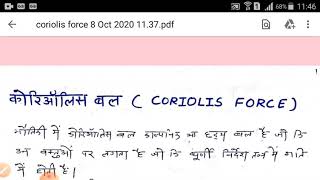 11:46
coriolis force 8 Oct 2020 11.37.pdf
1
कोरिऑलिस बल ( CORIOLIS FORCE )
भौतिकी में कोरिऑलिस बल काल्पनिक या छद्म बल है जो कि
उन वस्तुओं पर लगता है जो कि घूर्णी निर्देश तन्त्र में गति
में होती है।